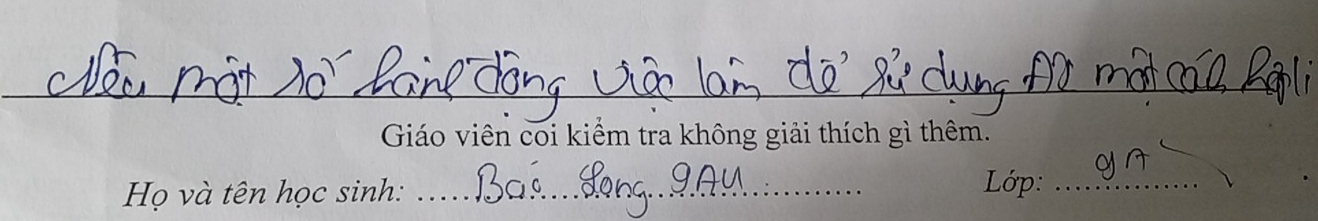 Nêu một số hành động việc làm để sử dụng AI một các hợp lí
Giáo viên coi kiểm tra không giải thích gì thêm.
Họ và tên học sinh: .....Bác...Long...9AU............... Lớp: ....9A..........